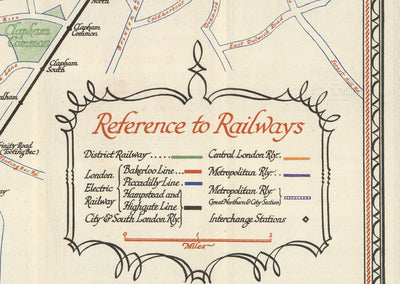 North
Clapham
Common
Clapham
Common
Clapham
South
East Dulwich Road
Trinity Road
(Tooting Bec)
Reference to Railways
District Railway .....
London
Electric
Railway
Bakerloo Line ...
Piccadilly Line
Hampstead and
Highgate Line
City & South London Rly.
Central London Rly.
Metropolitan Rly.
Metropolitan Rly.
(Great Northern & City Section)
Interchange Stations
0 1 2
Miles